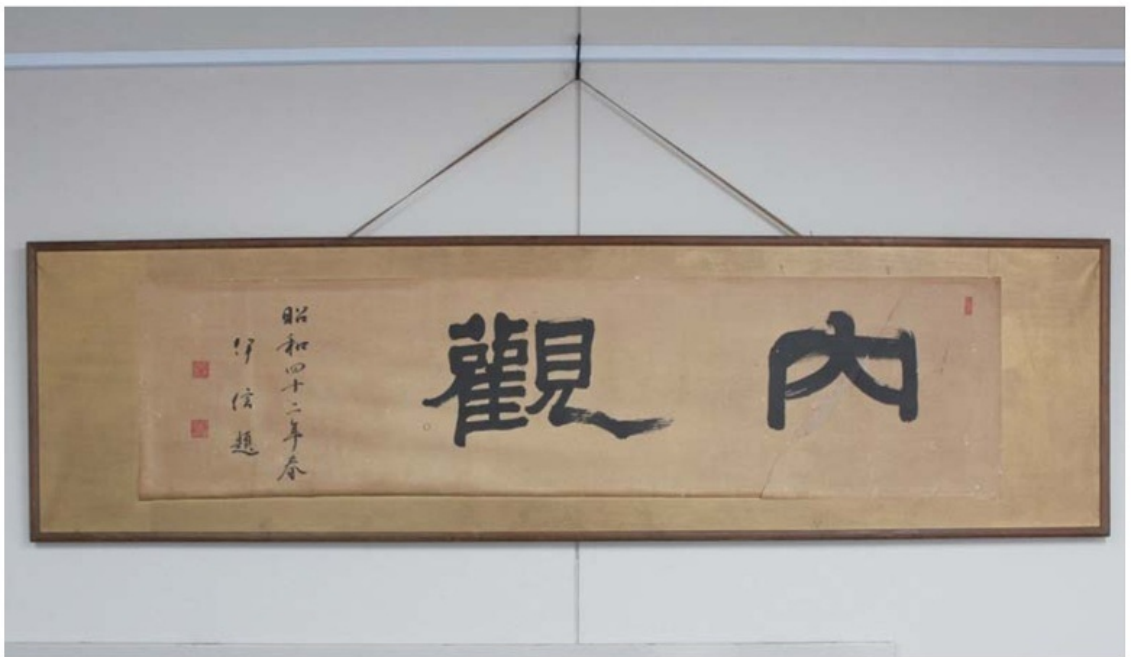 内觀
昭和四十二年春
伊信題